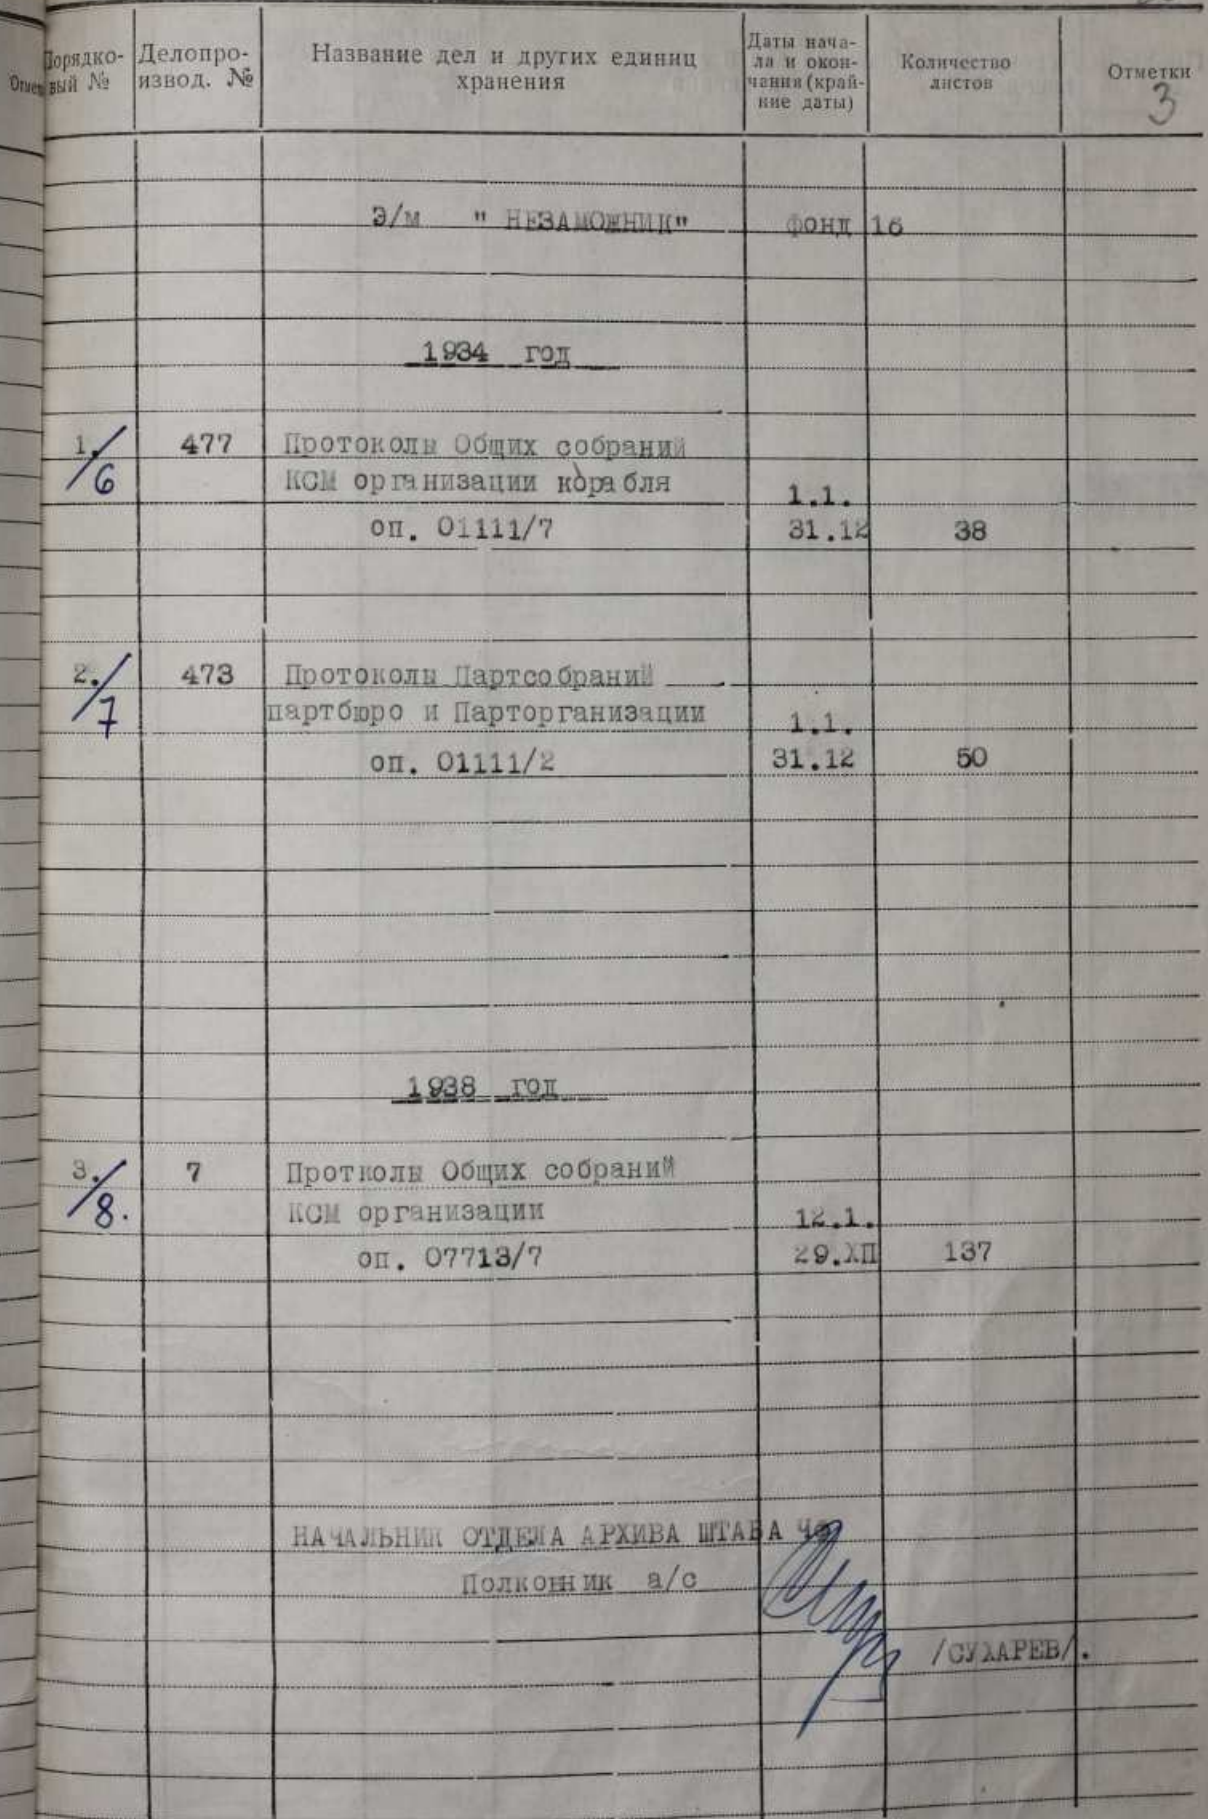 Порядко-
вый №
Делопро-
извод. №
Название дел и других единиц
хранения
Даты нача-
ла и окон-
чания (край-
ние даты)
Количество
листов
Отметки
3
Э/м " НЕЗАМОЖНИК" фонд 16
1934 год
1./6 477 Протоколы Общих собраний
КСМ организации корабля 1.1.
оп. 01111/7 31.12 38
2./7 473 Протоколы Партсобраний
партбюро и Парторганизации 1.1.
оп. 01111/2 31.12 50
1938 год
3./8. 7 Протколы Общих собраний
КСМ организации 12.1.
оп. 07713/7 29.ХП 137
НАЧАЛЬНИК ОТДЕЛА АРХИВА ШТАБА ЧФ
Полковник а/с
/СУХАРЕВ/.